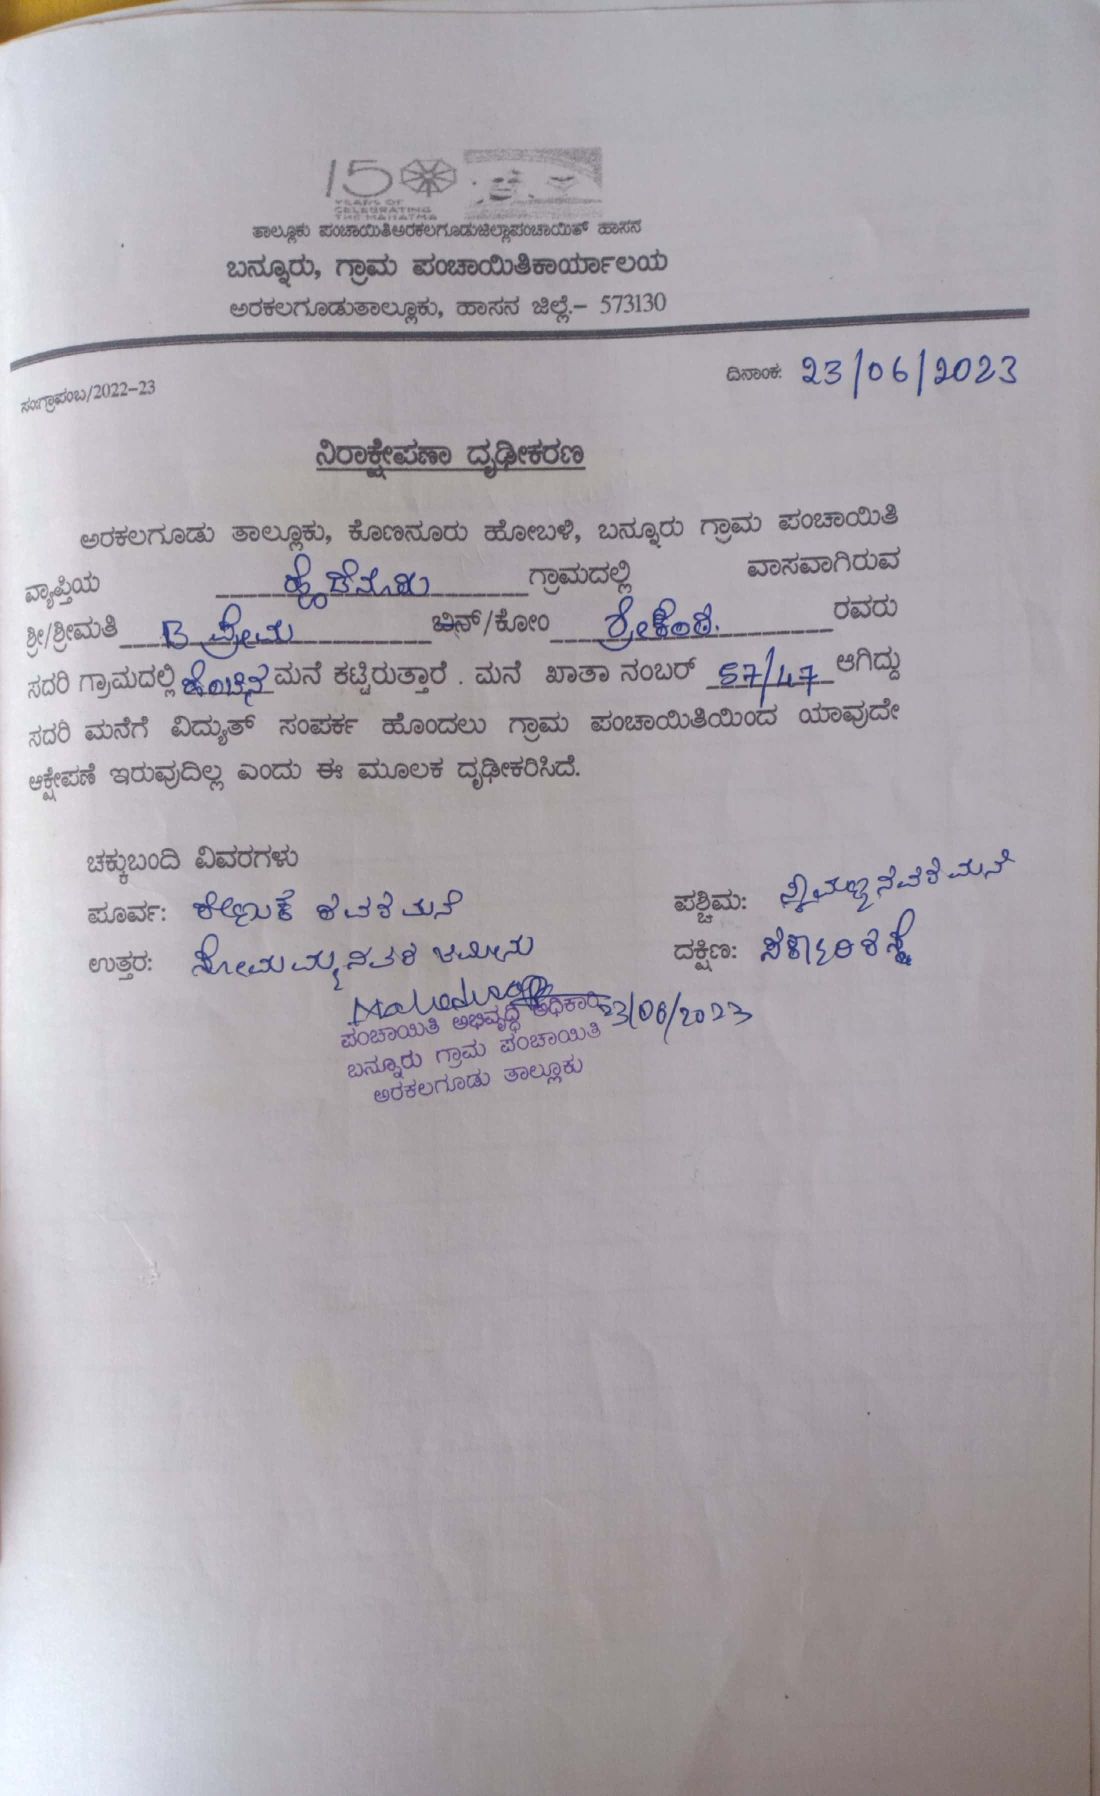 150
YEARS OF
CELEBRATING
THE MAHATMA
ತಾಲ್ಲೂಕು ಪಂಚಾಯಿತಿಅರಕಲಗೂಡುಜಿಲ್ಲಾಪಂಚಾಯಿತ್ ಹಾಸನ
ಬನ್ನೂರು, ಗ್ರಾಮ ಪಂಚಾಯಿತಿಕಾರ್ಯಾಲಯ
ಅರಕಲಗೂಡುತಾಲ್ಲೂಕು, ಹಾಸನ ಜಿಲ್ಲೆ.– 573130
ಸಂ:ಗ್ರಾಪಂಬ/2022–23 ದಿನಾಂಕ: 23/06/2023
ನಿರಾಕ್ಷೇಪಣಾ ದೃಢೀಕರಣ
ಅರಕಲಗೂಡು ತಾಲ್ಲೂಕು, ಕೊಣನೂರು ಹೋಬಳಿ, ಬನ್ನೂರು ಗ್ರಾಮ ಪಂಚಾಯಿತಿ
ವ್ಯಾಪ್ತಿಯ ಗ್ರಾಮದಲ್ಲಿ ವಾಸವಾಗಿರುವ
ಶ್ರೀ/ಶ್ರೀಮತಿ B ಪ್ರೇಮ ಬಿನ್/ಕೋಂ ರವರು
ಸದರಿ ಗ್ರಾಮದಲ್ಲಿ ಹೆಂಚಿನ ಮನೆ ಕಟ್ಟಿರುತ್ತಾರೆ . ಮನೆ ಖಾತಾ ನಂಬರ್ 57/47 ಆಗಿದ್ದು
ಸದರಿ ಮನೆಗೆ ವಿದ್ಯುತ್ ಸಂಪರ್ಕ ಹೊಂದಲು ಗ್ರಾಮ ಪಂಚಾಯಿತಿಯಿಂದ ಯಾವುದೇ
ಆಕ್ಷೇಪಣೆ ಇರುವುದಿಲ್ಲ ಎಂದು ಈ ಮೂಲಕ ದೃಢೀಕರಿಸಿದೆ.
ಚಕ್ಕುಬಂದಿ ವಿವರಗಳು
ಪೂರ್ವ: ಪಶ್ಚಿಮ:
ಉತ್ತರ: ದಕ್ಷಿಣ:
23/06/2023
ಪಂಚಾಯಿತಿ ಅಭಿವೃದ್ಧಿ ಅಧಿಕಾರಿ
ಬನ್ನೂರು ಗ್ರಾಮ ಪಂಚಾಯಿತಿ
ಅರಕಲಗೂಡು ತಾಲ್ಲೂಕು